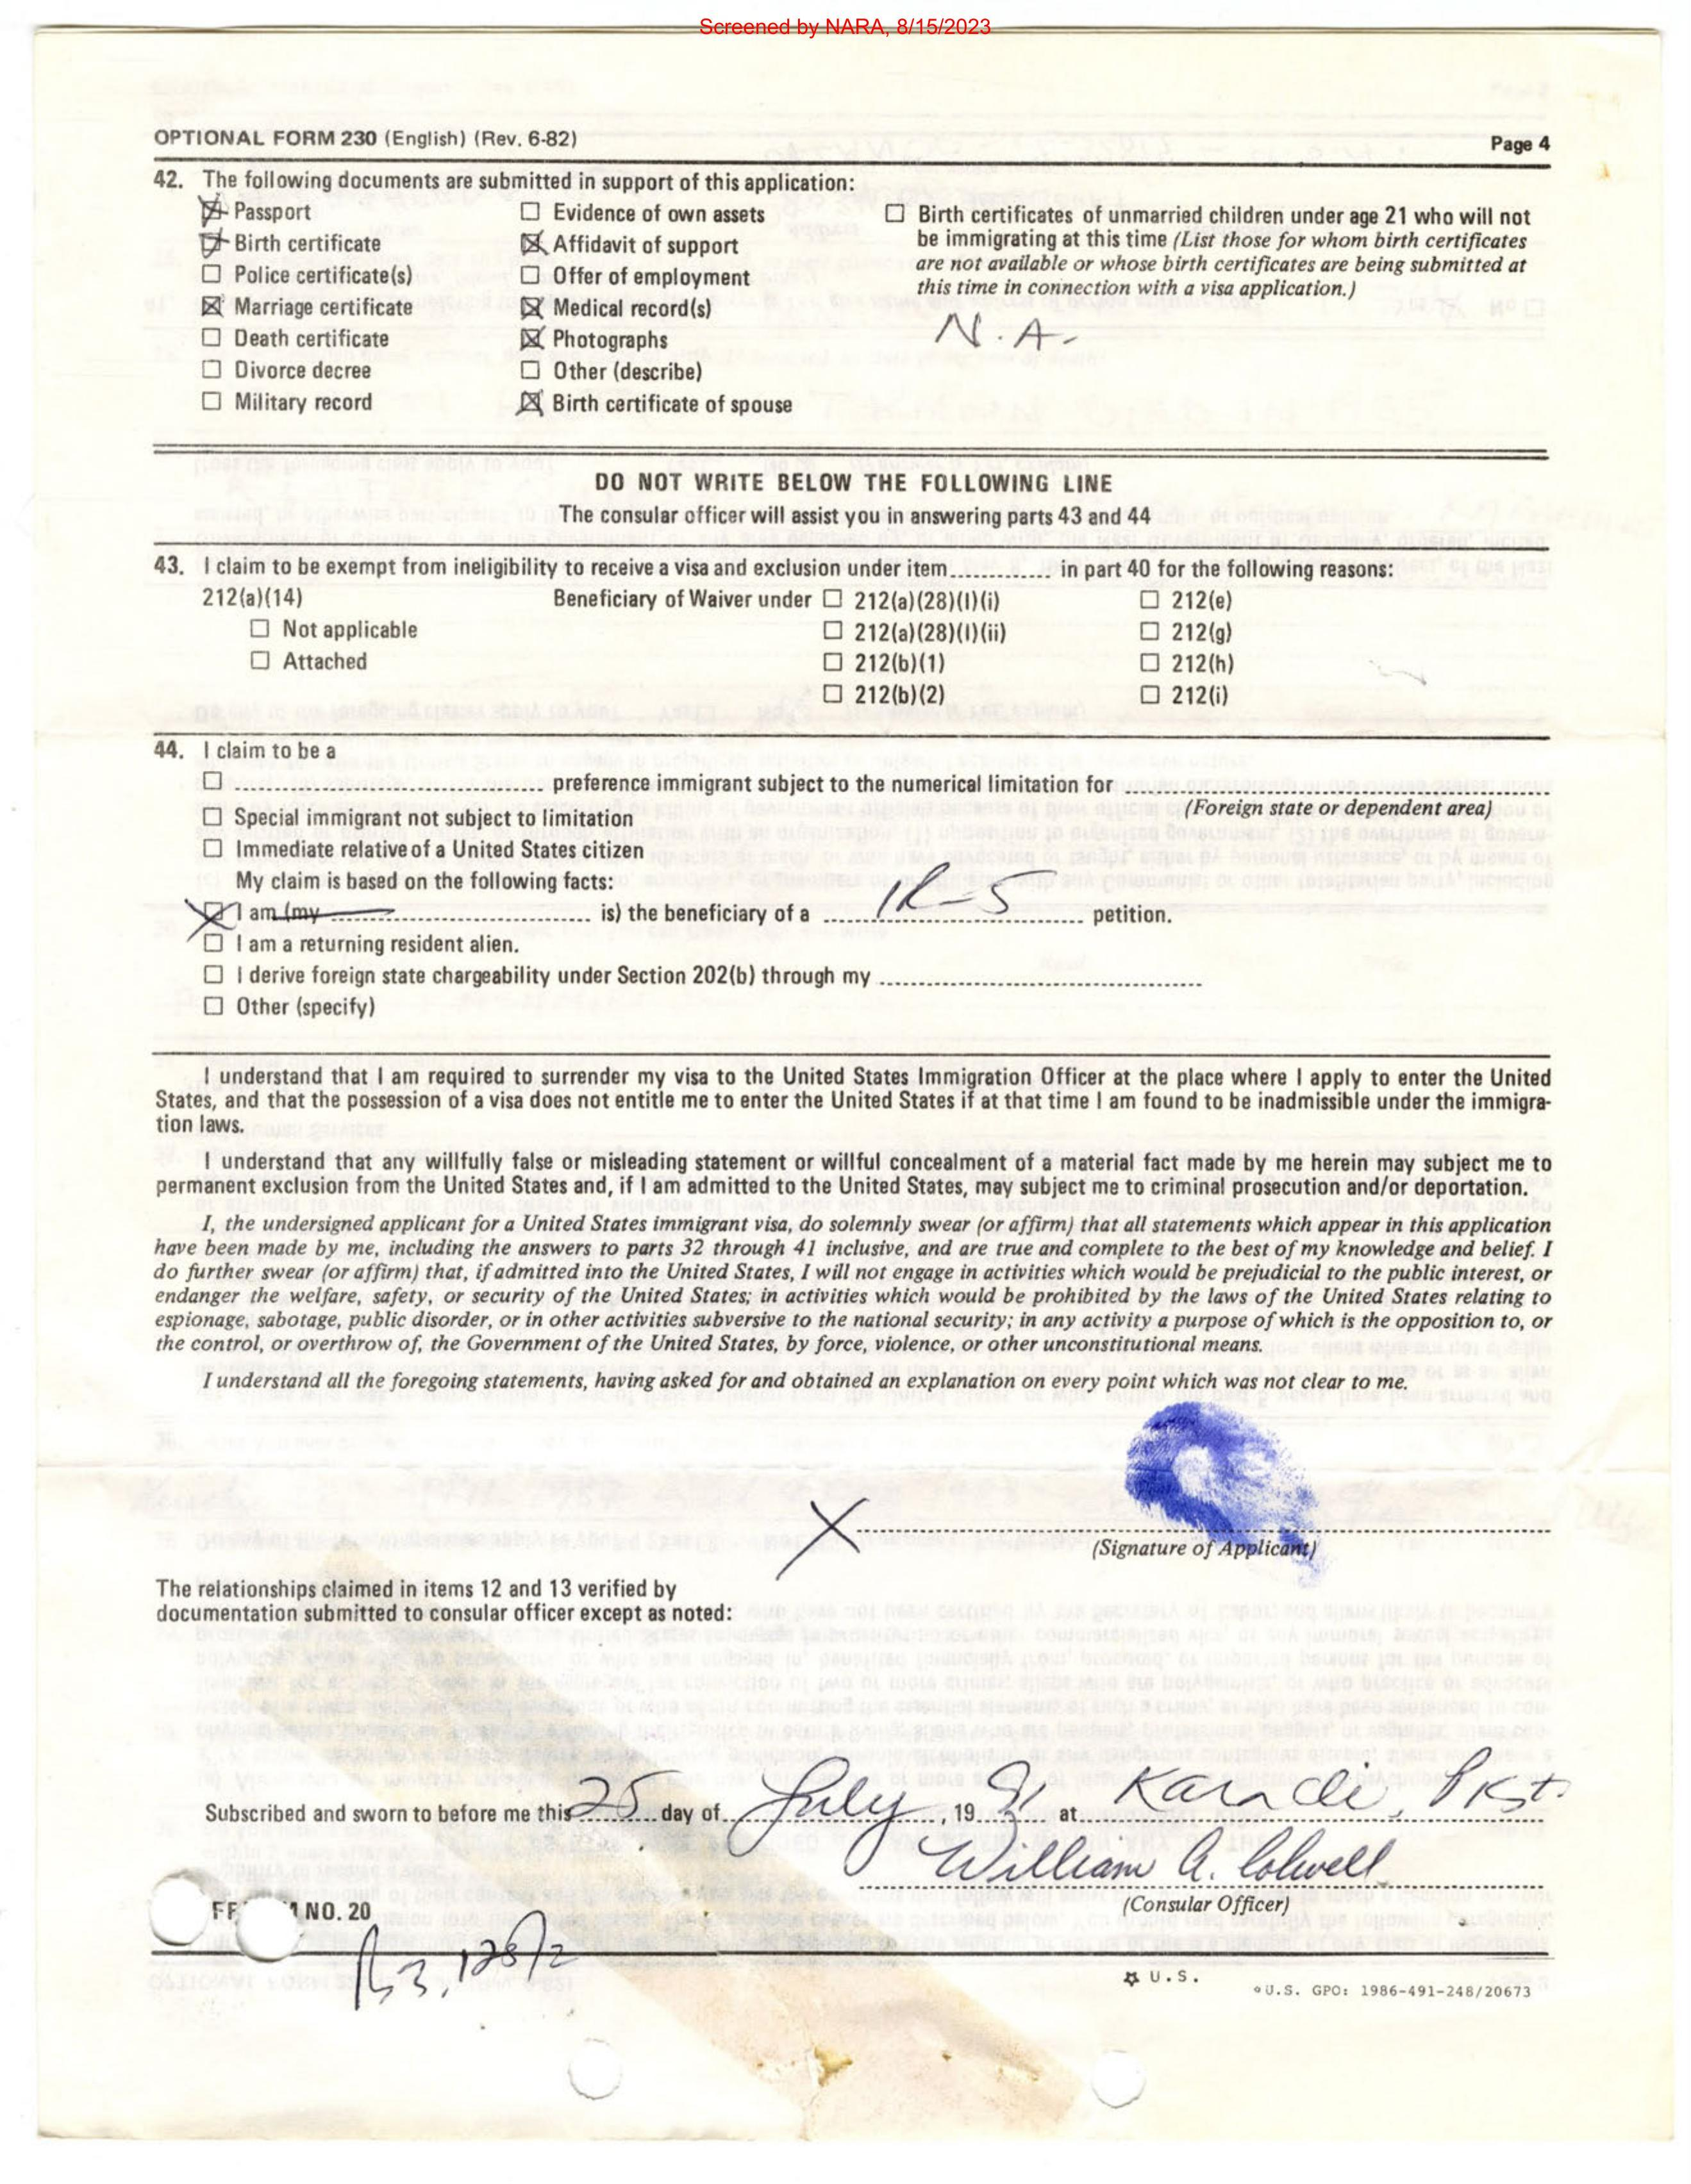 Screened by NARA, 8/15/2023
OPTIONAL FORM 230 (English) (Rev. 6-82)
Page 4
42. The following documents are submitted in support of this application:
Passport
Birth certificate
Police certificate(s)
Marriage certificate
Death certificate
Divorce decree
Military record
Evidence of own assets
Affidavit of support
Offer of employment
Medical record(s)
Photographs
Other (describe)
Birth certificate of spouse
Birth certificates of unmarried children under age 21 who will not
be immigrating at this time (List those for whom birth certificates
are not available or whose birth certificates are being submitted at
this time in connection with a visa application.)
N.A.
DO NOT WRITE BELOW THE FOLLOWING LINE
The consular officer will assist you in answering parts 43 and 44
43. I claim to be exempt from ineligibility to receive a visa and exclusion under item............ in part 40 for the following reasons:
212(a)(14)
Not applicable
Attached
Beneficiary of Waiver under
212(a)(28)(I)(i)
212(a)(28)(I)(ii)
212(b)(1)
212(b)(2)
212(e)
212(g)
212(h)
212(i)
44. I claim to be a
preference immigrant subject to the numerical limitation for
(Foreign state or dependent area)
Special immigrant not subject to limitation
Immediate relative of a United States citizen
My claim is based on the following facts:
I am (my ............ is) the beneficiary of a IR-5 petition.
I am a returning resident alien.
I derive foreign state chargeability under Section 202(b) through my
Other (specify)
I understand that I am required to surrender my visa to the United States Immigration Officer at the place where I apply to enter the United
States, and that the possession of a visa does not entitle me to enter the United States if at that time I am found to be inadmissible under the immigra-
tion laws.
I understand that any willfully false or misleading statement or willful concealment of a material fact made by me herein may subject me to
permanent exclusion from the United States and, if I am admitted to the United States, may subject me to criminal prosecution and/or deportation.
I, the undersigned applicant for a United States immigrant visa, do solemnly swear (or affirm) that all statements which appear in this application
have been made by me, including the answers to parts 32 through 41 inclusive, and are true and complete to the best of my knowledge and belief. I
do further swear (or affirm) that, if admitted into the United States, I will not engage in activities which would be prejudicial to the public interest, or
endanger the welfare, safety, or security of the United States; in activities which would be prohibited by the laws of the United States relating to
espionage, sabotage, public disorder, or in other activities subversive to the national security; in any activity a purpose of which is the opposition to, or
the control, or overthrow of, the Government of the United States, by force, violence, or other unconstitutional means.
I understand all the foregoing statements, having asked for and obtained an explanation on every point which was not clear to me.
X
(Signature of Applicant)
The relationships claimed in items 12 and 13 verified by
documentation submitted to consular officer except as noted:
Subscribed and sworn to before me this 25 day of July, 19 91 at Karachi, Pkst.
William A. Colwell
(Consular Officer)
NO. 20
U.S.
U.S. GPO: 1986-491-248/20673